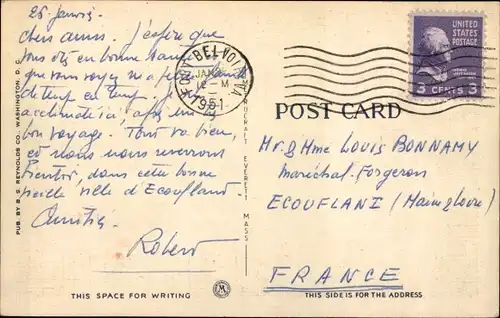 25 Janvier
Chers amis. J'espère que
vous êtes en bonne santé
que vous voyez
de temps en temps, je
acclimaté, après un
bon voyage. Tout va bien,
et nous nous reverrons
bientôt, dans cette bonne
vieille ville d'Ecouflant
Amitiés
Robert
THIS SPACE FOR WRITING
PUB. BY B. S. REYNOLDS CO., WASHINGTON, D. C.
EVERETT, MASS.
FORT BELVOIR, VA.
JAN
12 - M
1951
UNITED
STATES
POSTAGE
3 CENTS 3
POST CARD
Mr & Mme LOUIS BONNAMY
Maréchal-Forgeron
ECOUFLANT (Maine & Loire)
FRANCE
THIS SIDE IS FOR THE ADDRESS